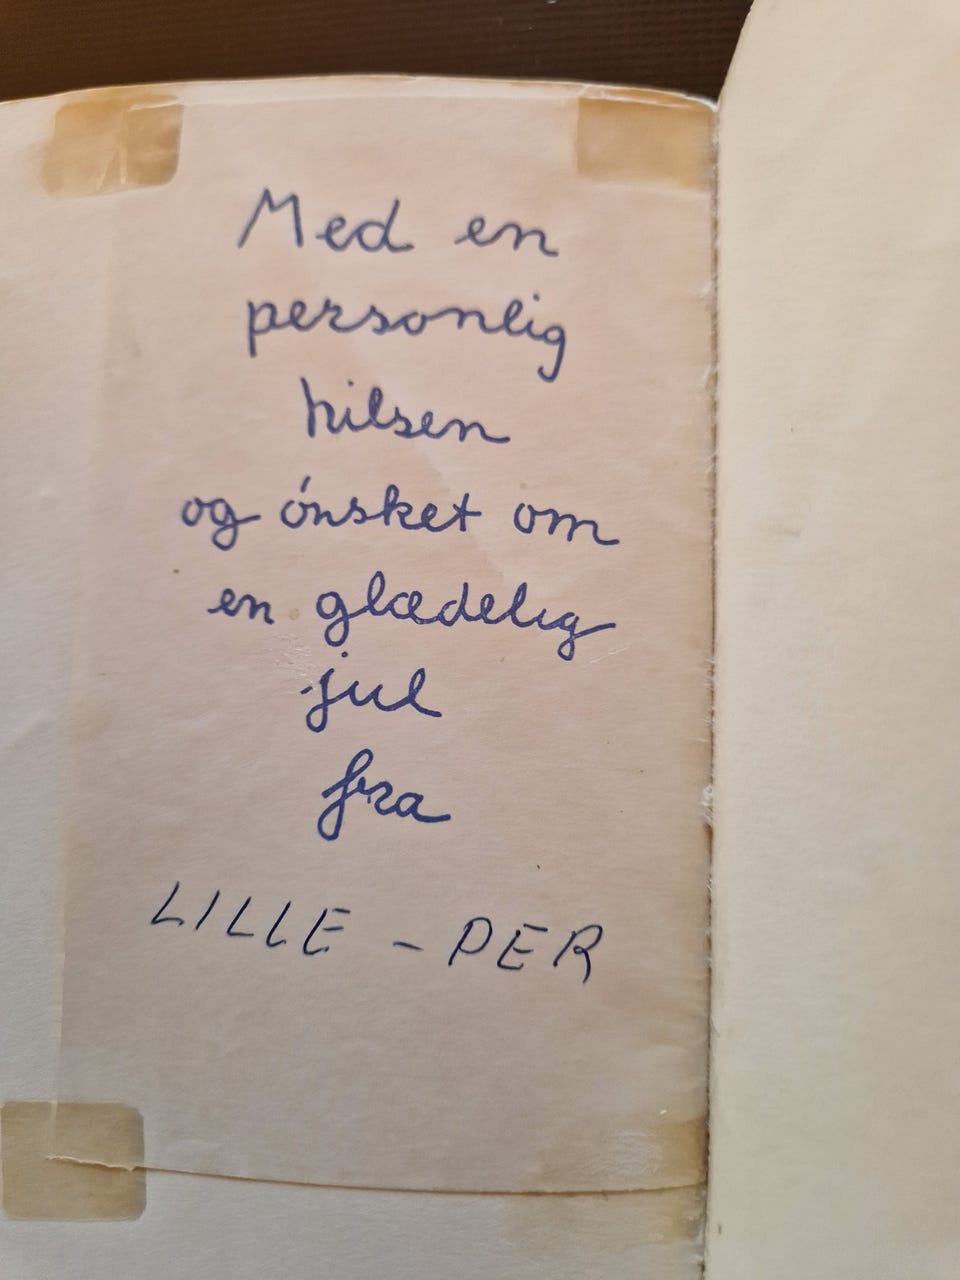 Med en
personlig
hilsen
og ønsket om
en glædelig
jul
fra
LILLE - PER